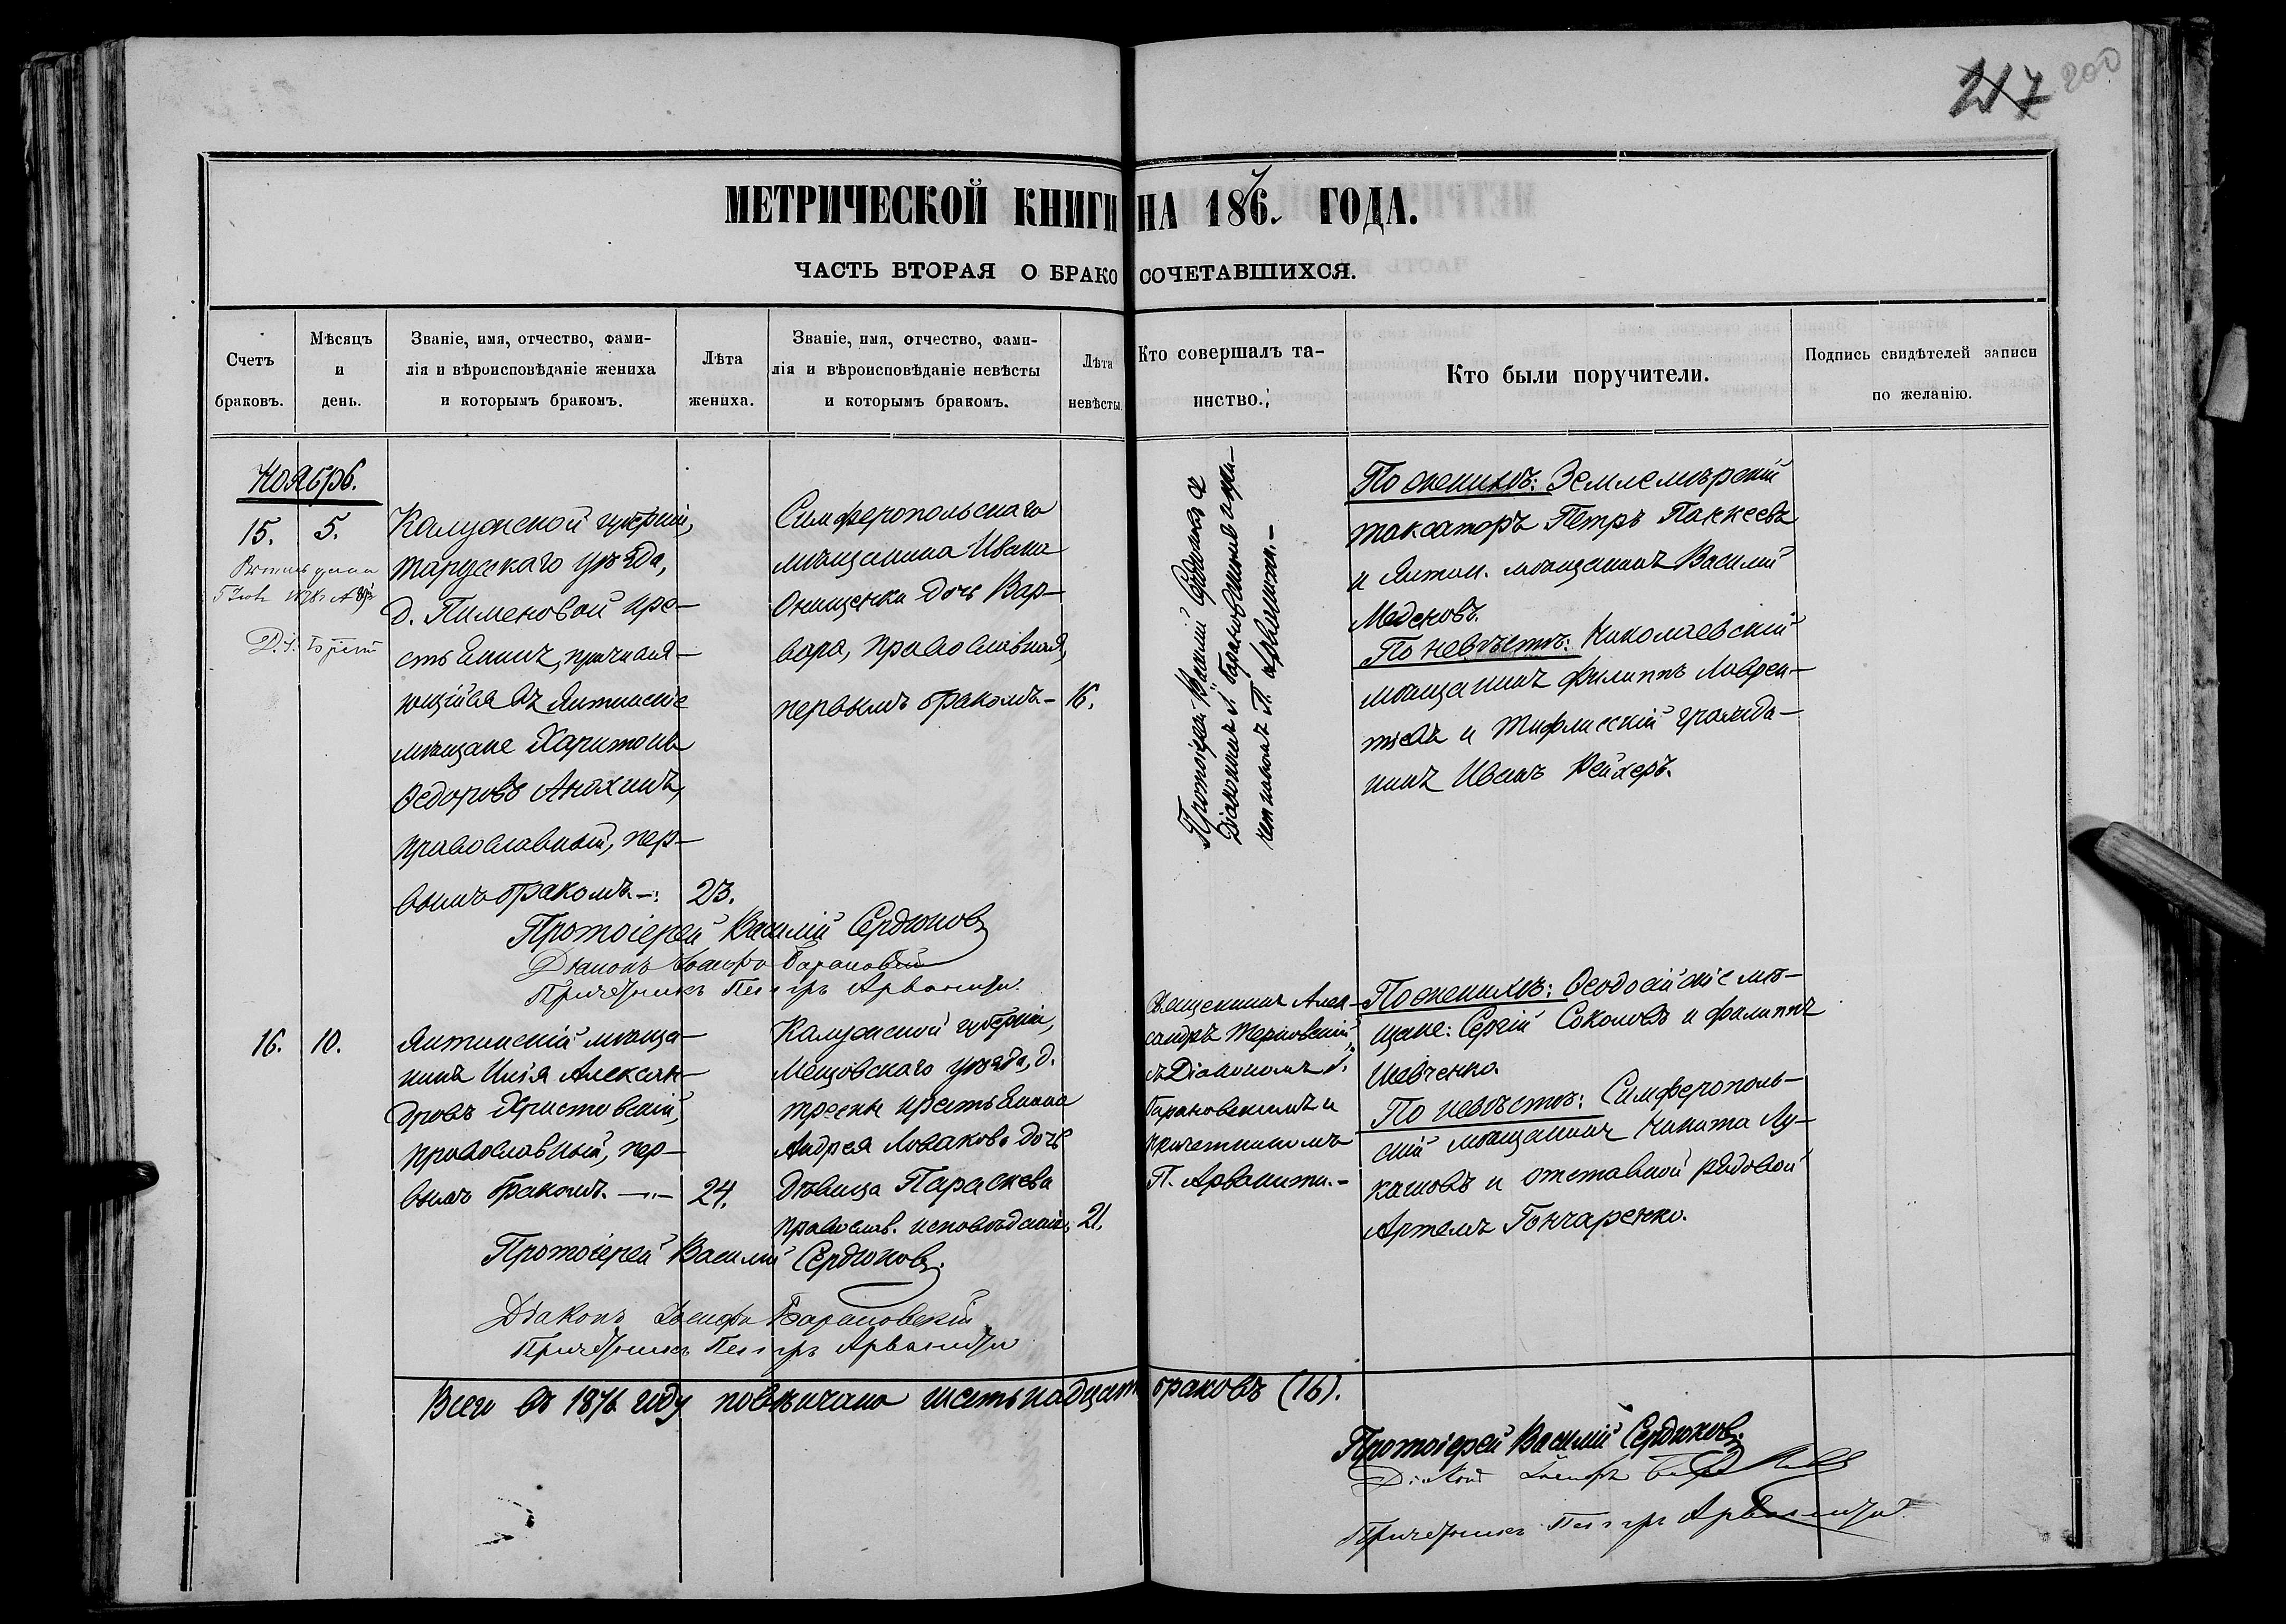 217 200
МЕТРИЧЕСКОЙ КНИГИ НА 1876. ГОДА.
ЧАСТЬ ВТОРАЯ О БРАКОСОЧЕТАВШИХСЯ.
Счетъ
браковъ.
Мѣсяцъ
и
день.
Званіе, имя, отчество, фами-
лія и вѣроисповѣданіе жениха
и которымъ бракомъ.
Лѣта
жениха.
Званіе, имя, отчество, фами-
лія и вѣроисповѣданіе невѣсты
и которымъ бракомъ.
Лѣта
невѣсты.
Кто совершалъ та-
инство.
Кто были поручители.
Подпись свидѣтелей записи
по желанію.
Ноябрь.
15. 5.
Калужской губерніи,
Тарусскаго уѣзда,
д. Пименовой кре-
стьянинъ, причисля-
ющійся въ Ялтинскіе
мѣщане Харитонъ
Ѳедоровъ Анохинъ,
православный, пер-
вымъ бракомъ -: 23.
Симферопольскаго
мѣщанина Ивана
Онищенки дочь Вар-
вара, православная,
первымъ бракомъ - 16.
Протоіерей Василій Сердюковъ съ
Діакономъ І. Барановскимъ и при-
четникомъ П. Арванити. -
По женихѣ: Землемѣрскій
таксаторъ Петръ Паккеевъ
и Ялтин. мѣщанинъ Василій
Меденовъ.
По невѣстѣ: Николаевскій
мѣщанинъ Филиппъ Лаврен-
тьевъ и Тифлисскій гражда-
нинъ Иванъ Рейхеръ.
Протоіерей Василій Сердюковъ
Діаконъ Іосифъ Барановскій
Причетникъ Петръ Арванити
16. 10.
Ялтинскій мѣща-
нинъ Илья Алексан-
дровъ Христовскій,
православный, пер-
вымъ бракомъ. -„- 24.
Калужской губерніи,
Мещовскаго уѣзда, д.
Тресны крестьянина
Андрея Новакова дочь
дѣвица Параскева
православ. исповѣданія. 21.
Священникъ Алек-
сандръ Терновскій,
съ Діакономъ І.
Барановскимъ и
причетникомъ
П. Арванити. -
По женихѣ: Ѳеодосійскіе мѣ-
щане: Сергій Соколовъ и Филиппъ
Шевченко.
По невѣстѣ: Симферополь-
скій мѣщанинъ Никита Лу-
кашовъ и отставной рядовой
Артемъ Гончаренко.
Протоіерей Василій Сердюковъ.
Діаконъ Іосифъ Барановскій
Причетникъ Петръ Арванити
Всего въ 1876 году повѣнчано шестьнадцать браковъ (16).
Протоіерей Василій Сердюковъ.
Діаконъ Іосифъ
Причетникъ Петръ Арванити